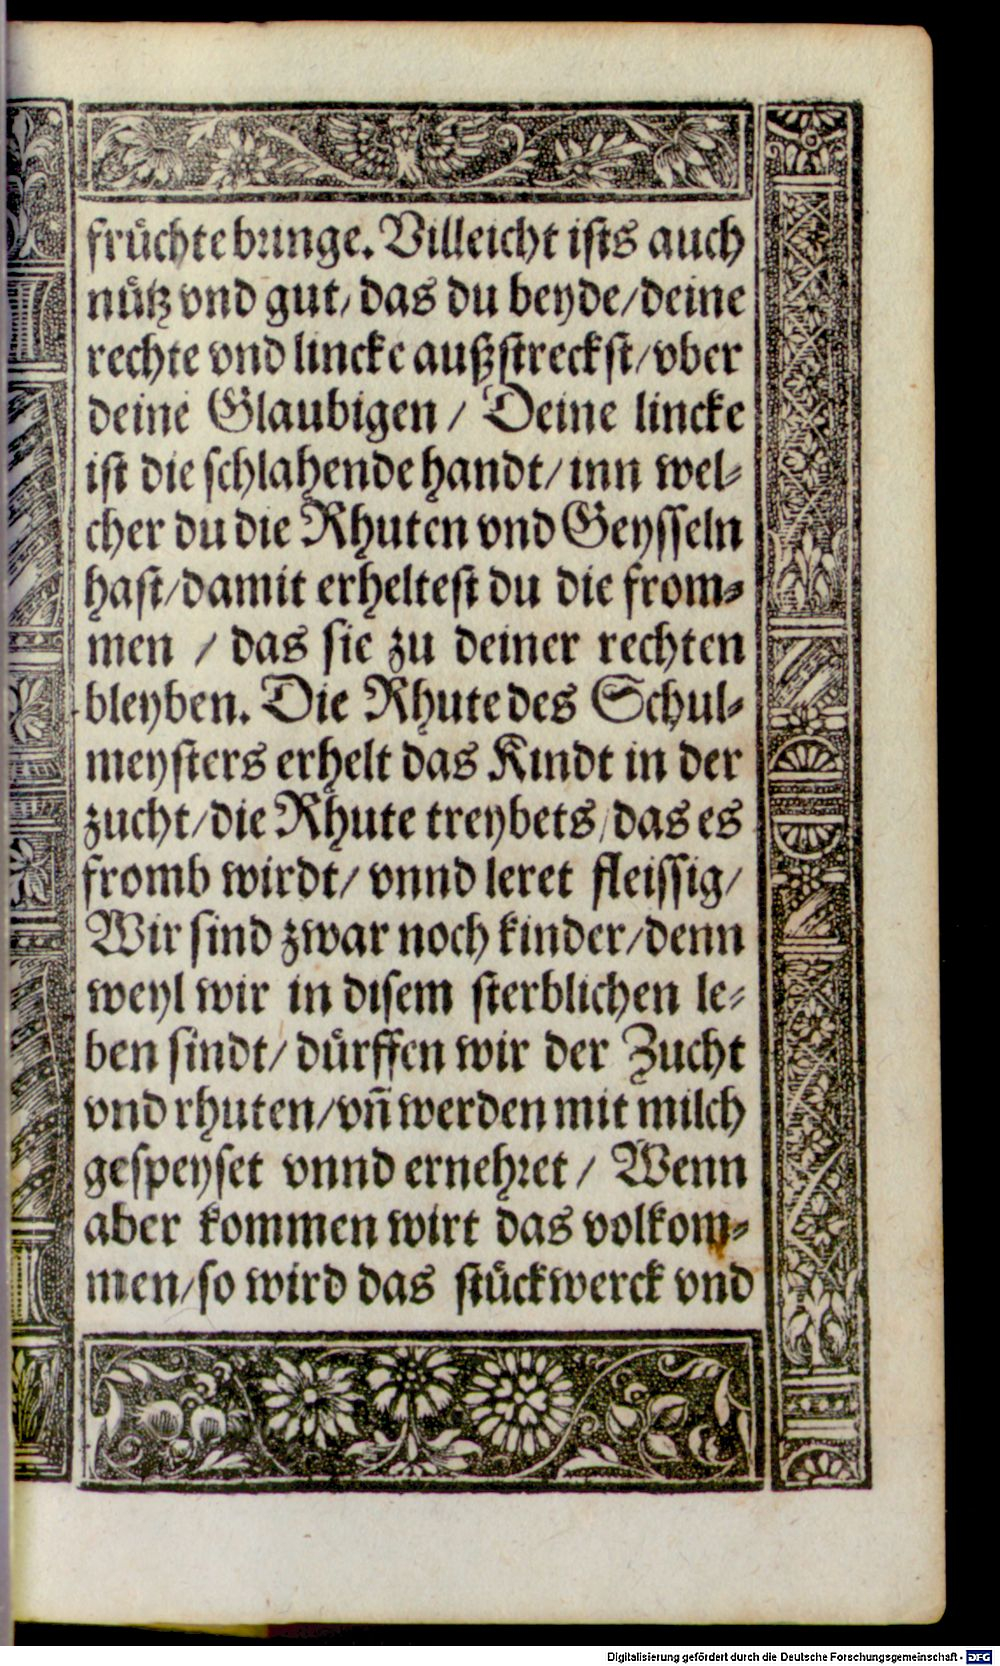 früchte bringe. Villeicht ists auch
nütz vnd gut/ das du beyde/ deine
rechte vnd lincke außstreckst/ vber
deine Glaubigen / Deine lincke
ist die schlahende handt/ inn wel-
cher du die Rhuten vnd Geysseln
hast/ damit erheltest du die from-
men / das sie zu deiner rechten
bleyben. Die Rhute des Schul-
meysters erhelt das Kindt in der
zucht/ die Rhute treybets/ das es
fromb wirdt/ vnnd leret fleissig/
Wir sind zwar noch kinder/ denn
weyl wir in disem sterblichen le-
ben sindt/ dürffen wir der Zucht
vnd rhuten/ vñ werden mit milch
gespeyset vnnd ernehret / Wenn
aber kommen wirt das volkom-
men/ so wird das stückwerck vnd
Digitalisierung gefördert durch die Deutsche Forschungsgemeinschaft - DFG